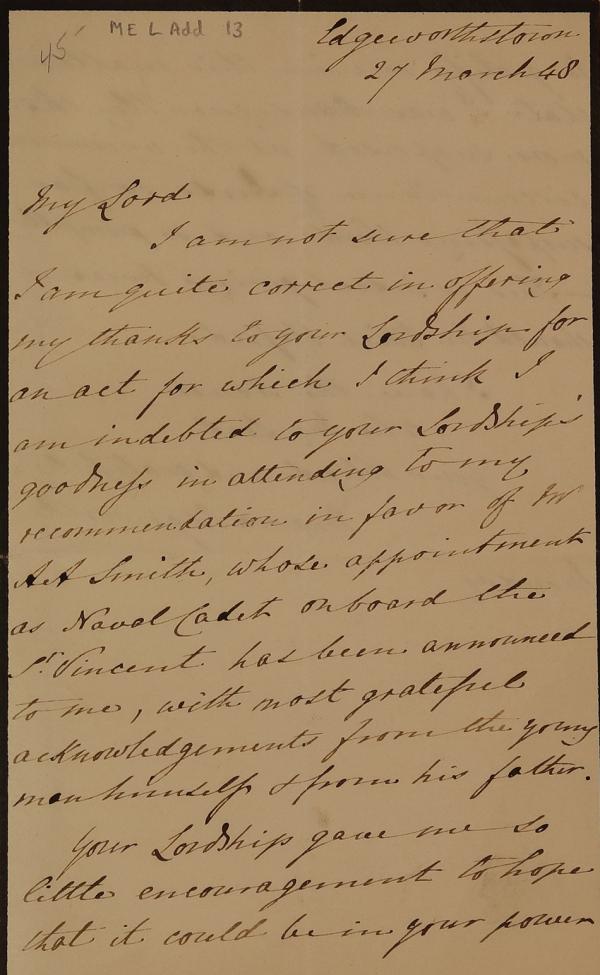 45
ME L Add 13
Edgeworthstown
27 March 48
My Lord
I am not sure that
I am quite correct in offering
my thanks to your Lordship for
an act for which I think I
am indebted to your Lordship's
goodness in attending to my
recommendation in favor of Mr
A A Smith, whose appointment
as Naval Cadet on board the
St. Vincent has been announced
to me, with most grateful
acknowledgements from the young
man himself & from his father.
Your Lordship gave me so
little encouragement to hope
that it could be in your power